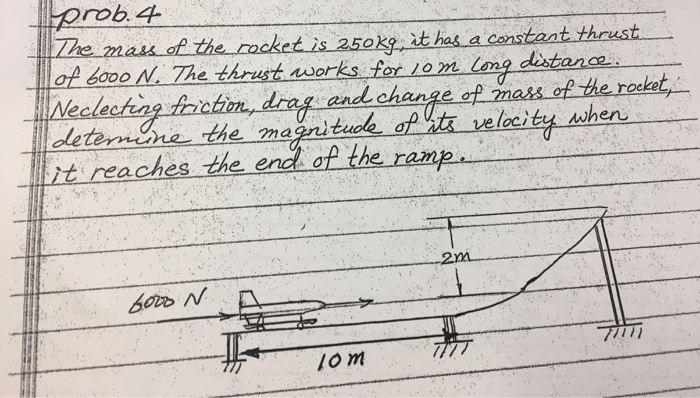 prob. 4
The mass of the rocket is 250kg, it has a constant thrust
of 6000 N. The thrust works for 10m long distance.
Neclecting friction, drag and change of mass of the rocket,
determine the magnitude of its velocity when
it reaches the end of the ramp.
2m
6000 N
10m